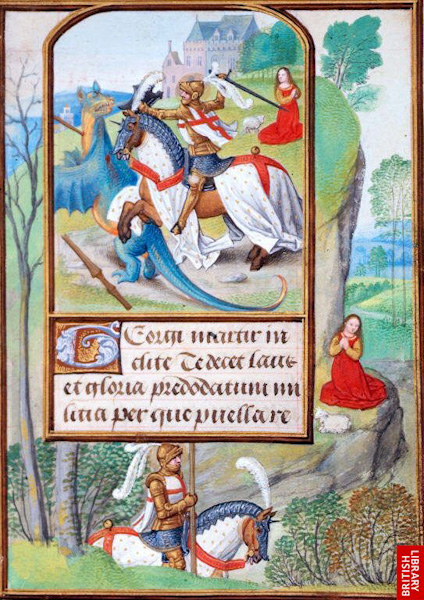 GEorgi martir in
clite Te decet laus
et gloria predodatum mi
litia per que puella re
BRITISH
LIBRARY